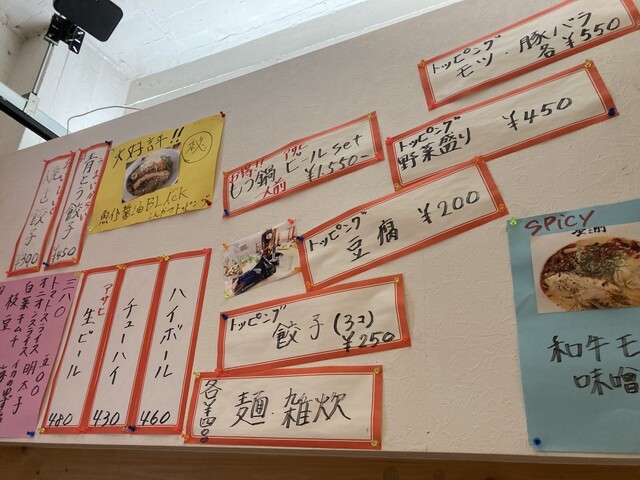 トッピング
モツ・豚バラ
各¥550
トッピング
野菜盛り
¥450
もつ鍋
一人前
ビールset
¥1,550-
トッピング
豆腐
¥200
トッピング
餃子(3コ)
¥250
麺・雑炊
大好評!!
秘
魚介醤油BLACK
青とう餃子
¥450
餃子
¥390
ハイボール
460
チューハイ
430
アサヒ
生ビール
480
トマトスライス
オニオンスライス
白菜キムチ
枝豆
明太子
SPICY
和牛モ
味噌